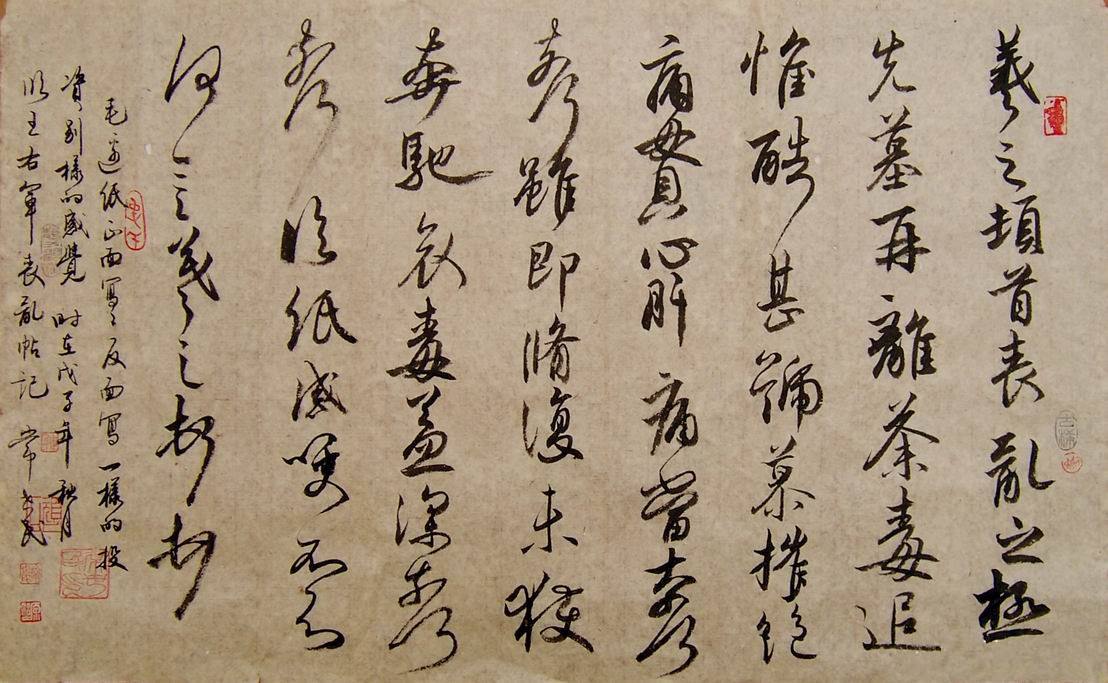 羲之頓首喪亂之極
先墓再離荼毒追
惟酷甚號慕摧絕
痛貫心肝痛當奈何
奈何雖即脩復未獲
奔馳哀毒益深奈何
奈何臨紙感哽不知
何言羲之頓首頓首
毛邊紙正面寫寫反面寫一樣的投
資別樣的感覺時在戊子年秋月
臨王右軍喪亂帖記